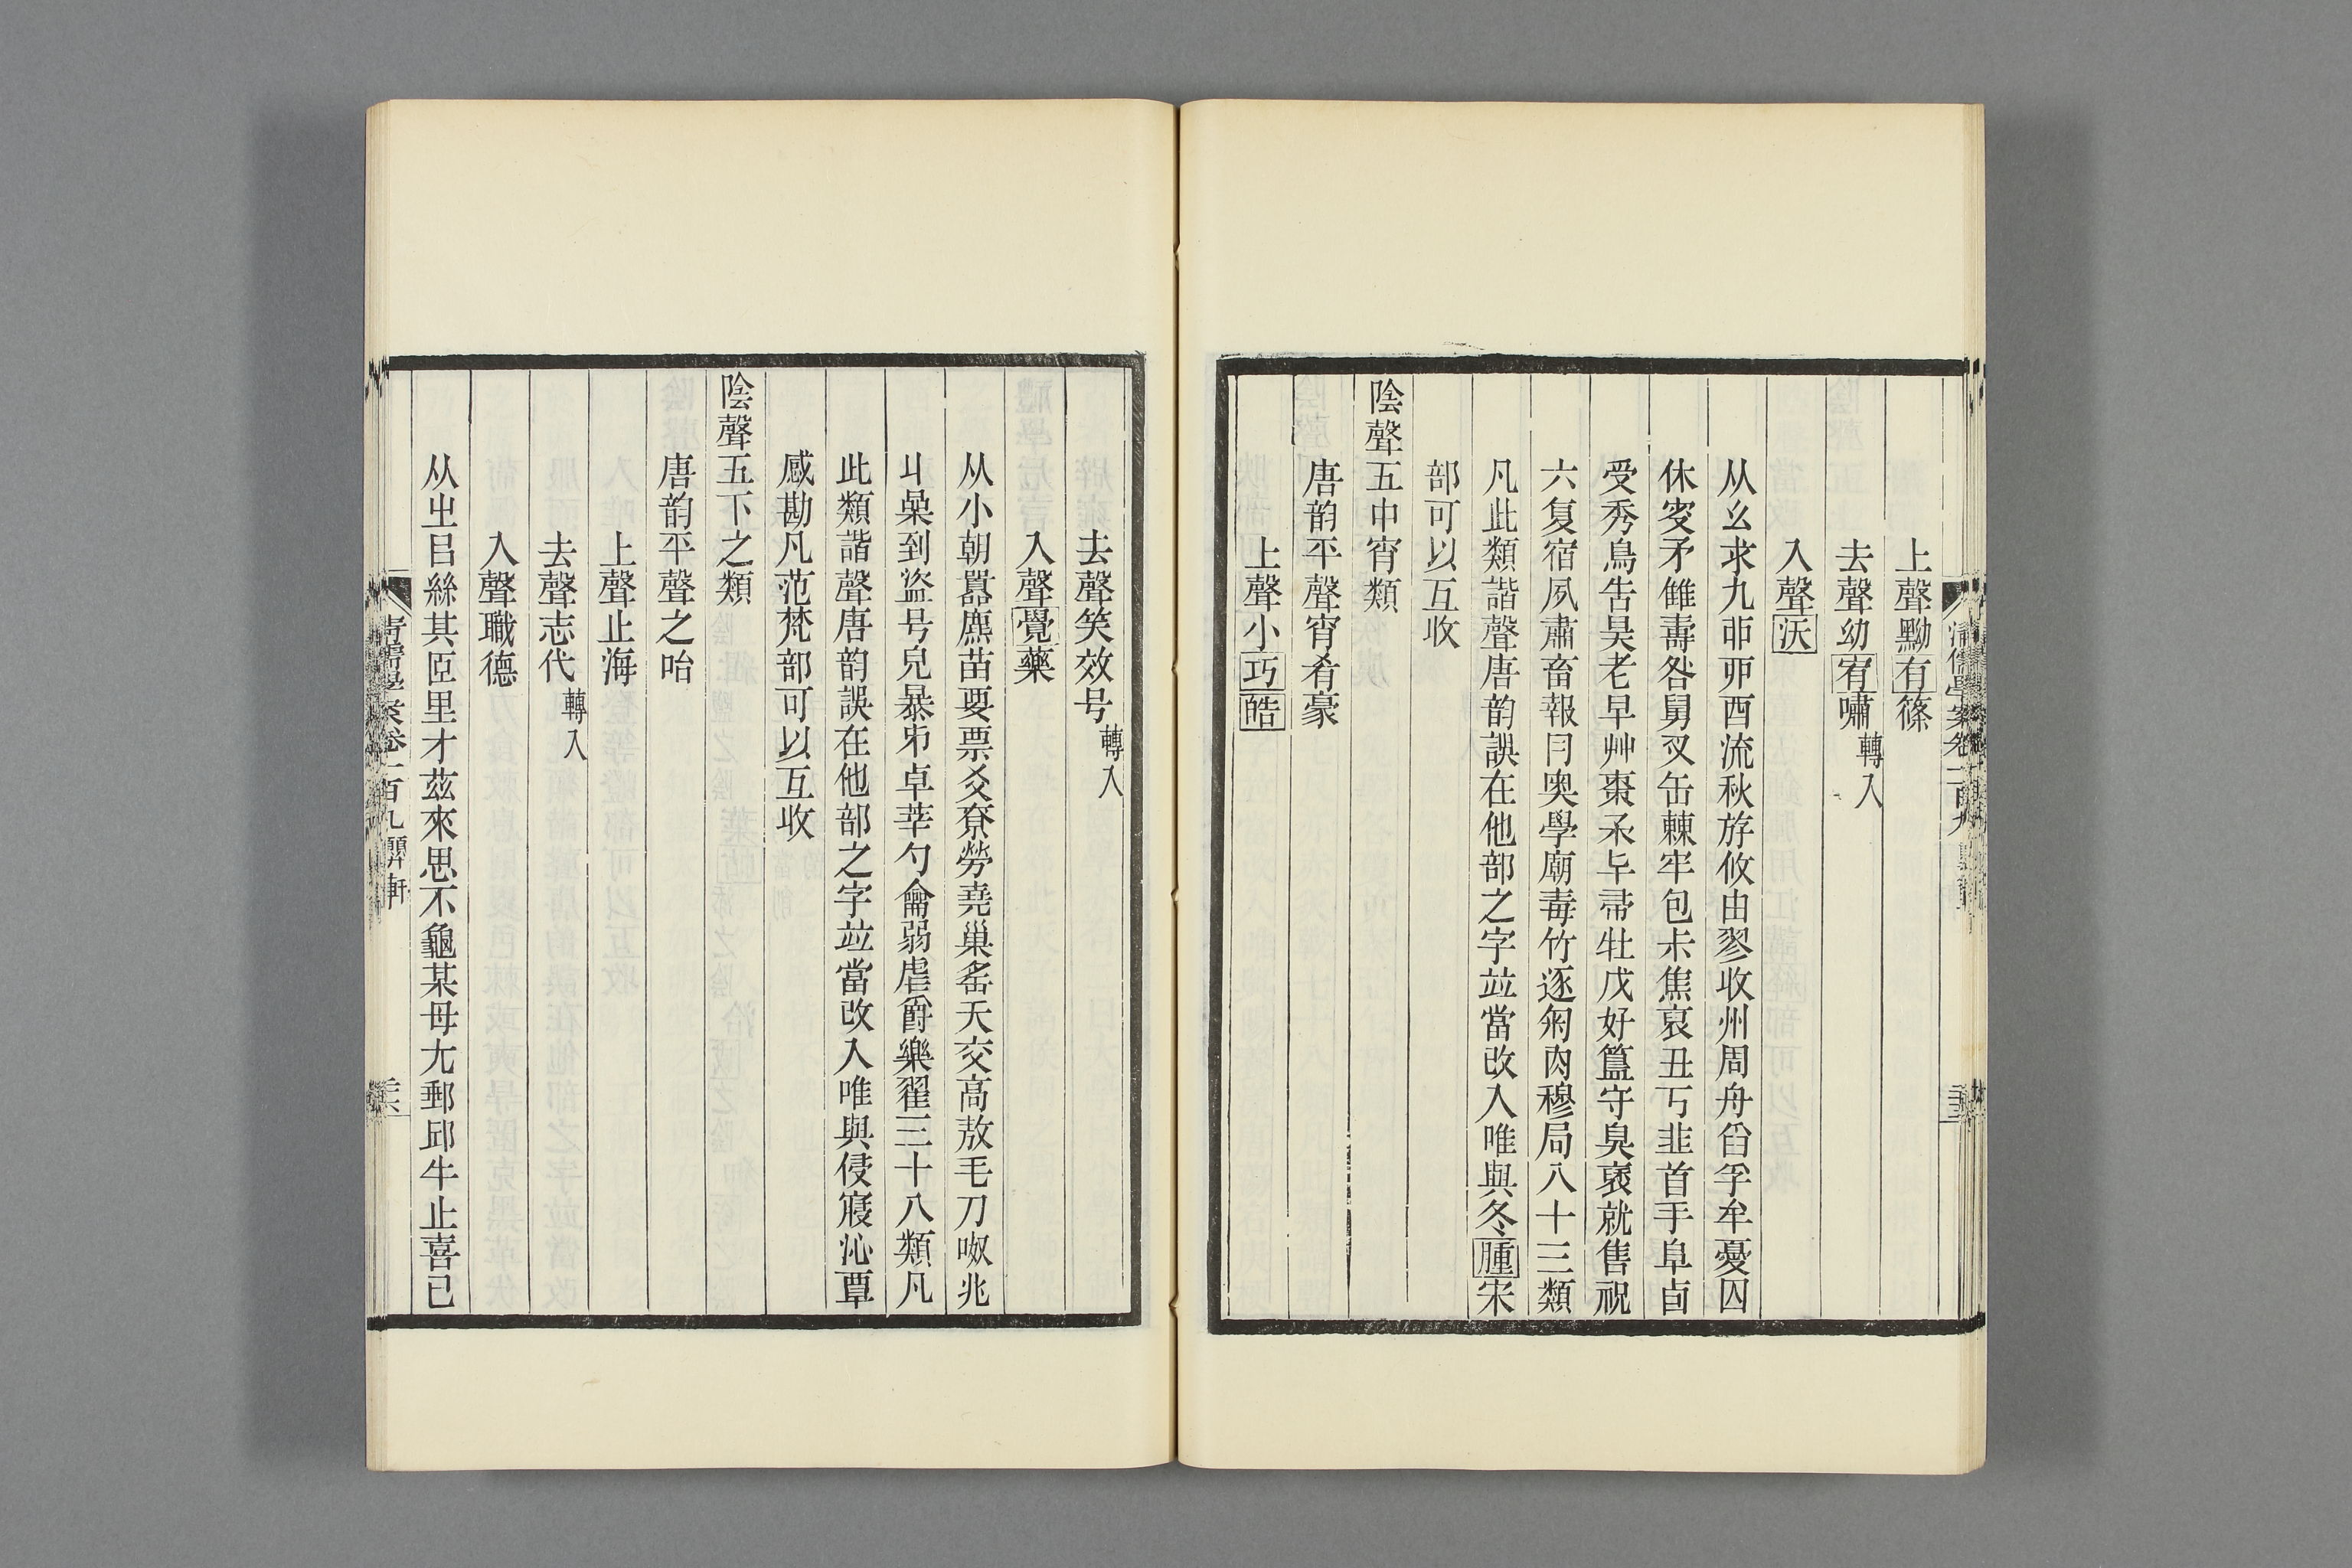 上聲黝有篠
去聲幼宥嘯轉入
入聲沃
从幺求九丣丣酉流秋斿攸由翏收州周舟舀孚牟憂囚
休叜矛雔壽咎舅叉缶棘牢包焦裒丑丂韭首手阜卣
受秀鳥吿昊老早艸棗帚牡戊好簋守臭褎就售祝
六复宿夙肅畜報奧學廟毒竹逐匊肉穆局八十三類
凡此類諧聲唐韵誤在他部之字竝當改入唯與冬腫宋
部可以互收
陰聲五中宵類
唐韵平聲宵肴豪
上聲小巧皓
清儒學案卷一百九
去聲笑效号轉入
入聲覺藥
从小朝囂麃苗要票爻尞勞堯巢䍃夭交高敖毛刀兆
丩喿到盜号皃暴卓丵勺龠弱虐爵樂翟三十八類凡
此類諧聲唐韵誤在他部之字竝當改入唯與侵寢沁覃
感勘凡范梵部可以互收
陰聲五下之類
唐韵平聲之咍
上聲止海
去聲志代轉入
入聲職德
从㞢㠯絲其𦣞里才茲來思不龜某母尢郵邱牛止喜已
清儒學案卷一百九 顨軒 三六